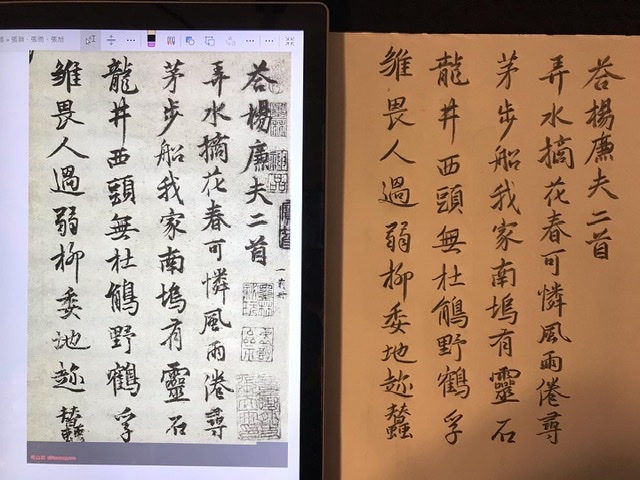 荅楊廉夫二首
弄水摘花春可憐風雨倦尋
茅步船我家南塢有靈石
龍井西頭無杜鵑野鶴孚
雛畏人過弱柳委地趂蠶
荅楊廉夫二首
弄水摘花春可憐風雨倦尋
茅步船我家南塢有靈石
龍井西頭無杜鵑野鶴孚
雛畏人過弱柳委地趂蠶